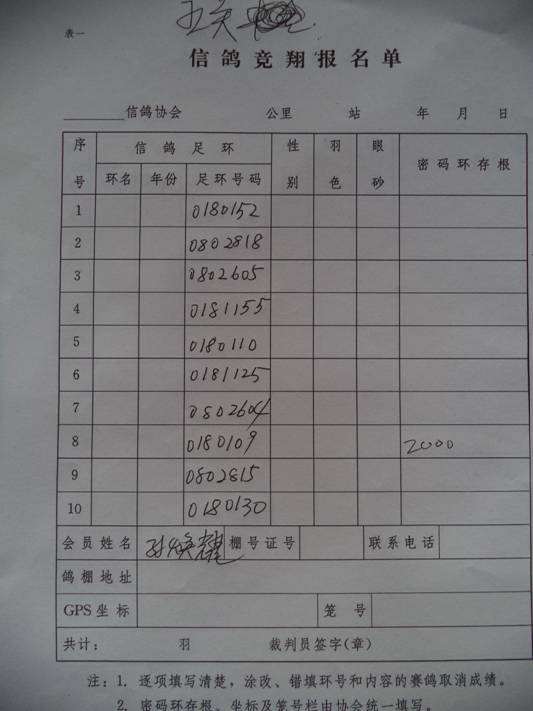 五关
表一
信鸽竞翔报名单
________信鸽协会 公里 站 年 月 日
序号 信鸽足环 性别 羽色 眼砂 密码环存根
环名 年份 足环号码
1 0180152
2 0802818
3 0802605
4 0181155
5 0180110
6 0181125
7 0802604
8 0180109 2000
9 0802815
10 0180130
会员姓名 孙焕耀 棚号证号 联系电话
鸽棚地址
GPS坐标 笼号
共计： 羽 裁判员签字(章)
注：1. 逐项填写清楚，涂改、错填环号和内容的赛鸽取消成绩。
2. 密码环存根、坐标及笼号栏由协会统一填写。